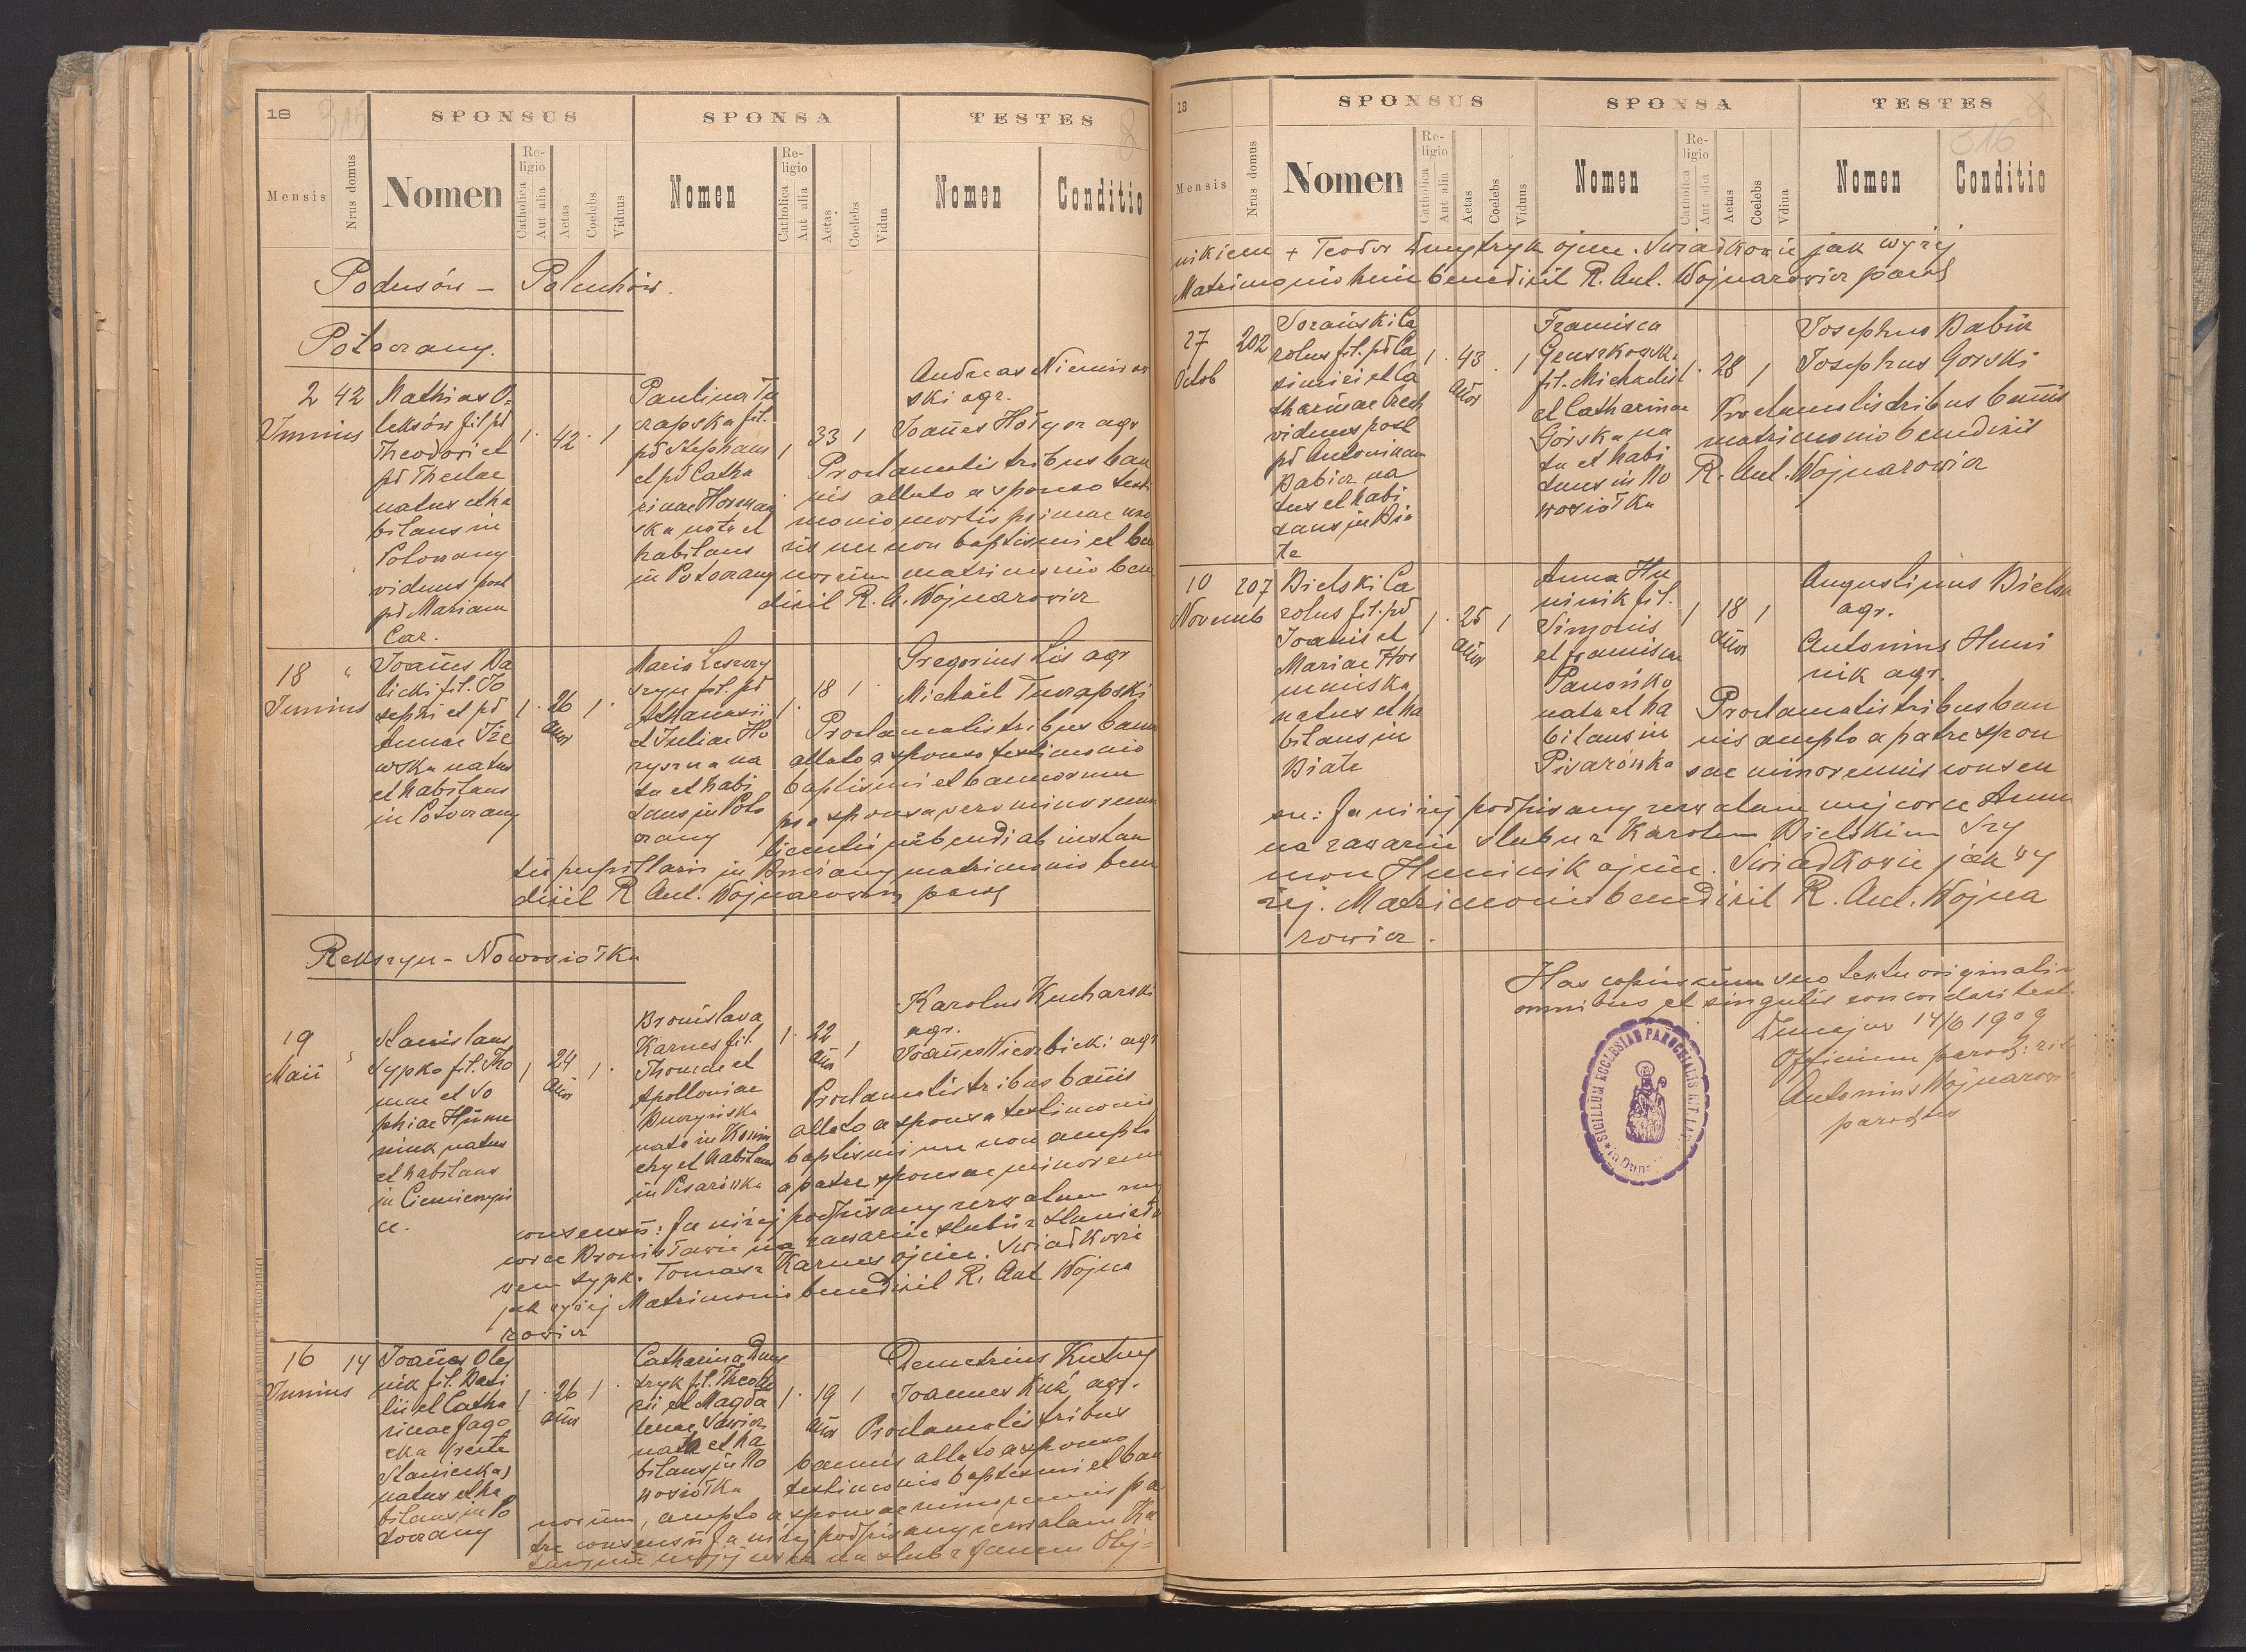 18 315 SPONSUS SPONSA TESTES 8
Mensis Nrus domus Nomen Religio Catholica Aut alia Aetas Coelebs Viduus Nomen Religio Catholica Aut alia Aetas Coelebs Vidua Nomen Conditio
Podusów - Poluchów.
Potoczany.
2 42
Junius
Mathias O=
leksów fil. pd
Theodori et
pd Theclae
natus et ha
bitans in
Potoczany
viduus post
pd Mariam
Car.
1. 42. 1
Paulina Tu
czapska fil.
pd Stephani
et pd Catha
rinae
ska nata et
habitans
in Potoczany
1 33 1
Andreas
ski agr.
Joañes agr
Proclamatis tribus ban
nis allato a sponso testi
monio mortis primae uxo
ris nec non baptismi et ban
norum matrimonio bene
dixit R. A. Wojnarowicz
18 "
Junius
Joañes Ba
licki fil. Jo
sephi et pd
Annae
wska natus
et habitans
in Potoczany
1. 26 1.
añor
Maria
fil. pd
Athanasii
et Juliae Ho
na
ta et habi
tans in Poto
czany
1. 18 1
Gregorius Lis agr
Michael Tuczapski
Proclamatis tribus bannis
allato a sponso testimonio
baptismi et bannorum
pro sponsa vero minorenni
licentia nubendi ab instan
tia pupillari in Brzeżany matrimonio bene
dixit R. Ant. Wojnarowicz paroch
Rekszyn - Nowosiółka
19 "
Maii
Stanislaus
Sypko fil. Tho
mae et So
phiae Humm
niuk natus
et habitans
in Ciemierzyń
ce.
1 24 1.
añor
Bronislava
Karnes fil.
Thomae et
Apolloniae
nata in
et habitans
in Pisarówka
1. 22 1
añor
Karolus Kucharski
agr.
Joañes Wierzbicki agr
Proclamatis tribus bañis
allato a sponsa testimonio
baptismi nec non accepto
a patre sponsae minorennis
consensu: Ja niżej podpisany zezwalam mej
córce Bronisławie na zawarcie ślubu z Stanisła
wem Sypko. Tomasz Karnes ojciec. Świadkowie
jak wyżej Matrimonio benedixit R. Ant Wojna
rowicz
16 14
Junius
Joañes Olej
nik fil. Basi
lii et Catha
rinae Jago
cka (recte
Stanicka)
natus et ha
bitans in Po
toczany
1. 26 1.
añor
Catharina Dmy
tryk fil. Theodo
rii et Magda
lenae Sawicz
nata et ha
bitans in No
wosiółka
1. 19 1
añor
Demetrius
Joannes Kuk agr.
Proclamatis tribus
bannis allato a sponso
testimonio baptismi et ban
norum, accepto a sponsae minorennis pa
tre consensu: Ja niżej podpisany zezwalam Ka
tarzynie mojej córce na ślub z Janem Olej=
18 SPONSUS SPONSA TESTES
316
Mensis Nrus domus Nomen Religio Catholica Aut alia Aetas Coelebs Viduus Nomen Religio Catholica Aut alia Aetas Coelebs Vdiua Nomen Conditio
nikiem + Teodor Dmytryk ojciec. Świadkowie jak wyżej
Matrimonio huic benedixit R. Ant. Wojnarowicz paroch
27 202
Octob
Sorański Ca
rolus fil. pd Ca
simiri et Ca
tharinae
viduus post
pd Antoninam
Babicz na
tus et habi
tans in Bia
łe
1. 43. 1
añor
Francisca
fil. Michaelis
et Catharinae
Górska na
ta et habi
tans in No
wosiółka
1. 28 1
Josephus Babicz
Josephus Gorski
Proclamatis tribus bañis
matrimonio benedixit
R. Ant. Wojnarowicz
10 207
Novemb
Bielski Ca
rolus fil. pd
Joanis et
Mariae Hor
mańska
natus et ha
bitans in
Białe
1. 25 1
añor
Anna Hu
minik fil.
Simonis
et Franciscae
Panońko
nata et ha
bitans in
Pisarówka
1 18 1
añor
Augustinus Bielski
agr.
Antonius Humi
nik agr.
Proclamatis tribus ban
nis accepto a patre spon
sae minorennis consen
su: Ja niżej podpisany zezwalam mej córce Annie
na zawarcie ślubu z Karolem Bielskim Szy
mon Huminik ojciec. Świadkowie jak wy
żej. Matrimonio benedixit R. Ant. Wojna
rowicz.
Has copias cum suo textu originali in
omnibus et singulis concordari testor
Dunajów 14/6 1909
Officium paroch: rit
Antonius Wojnarowicz
parochus
SIGILLUM ECCLESIAE PAROCHIALIS RIT. LAT. in Dun